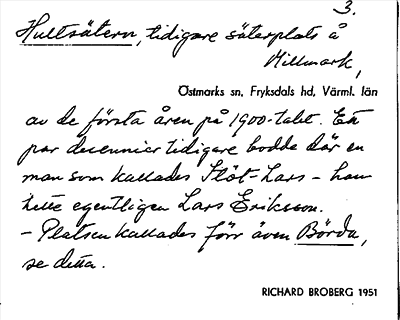 3.
Hultsätern, tidigare säterplats å
Millmark,
Östmarks sn, Fryksdals hd, Värml. län
av de första åren på 1900-talet. Ett
par decennier tidigare bodde där en
man som kallades Flöt-Lars – han
hette egentligen Lars Eriksson.
– Platsen kallades förr även Börda,
se detta.
RICHARD BROBERG 1951